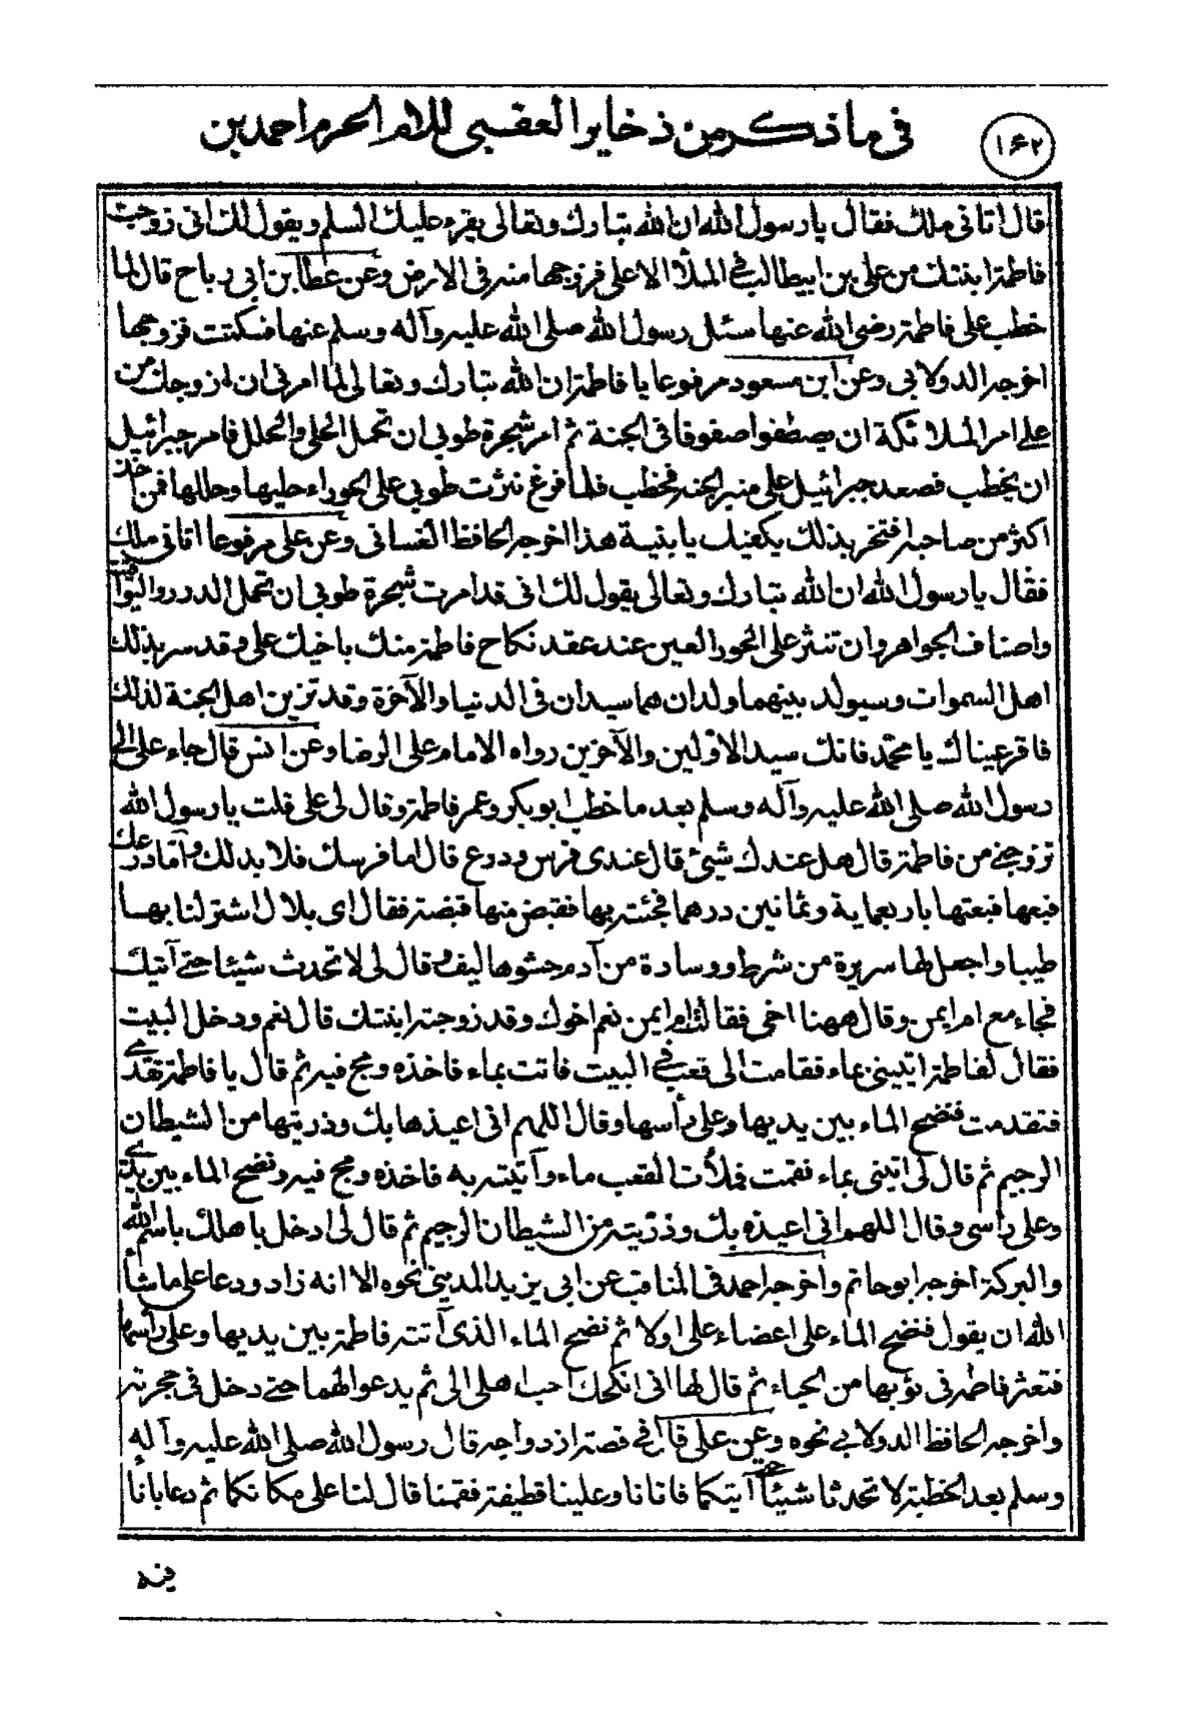 في ما ذكر من ذخاير العقبى للامام الحرم احمد بن
١٦٢
قال اتاني ملك فقال يا رسول الله ان الله تبارك وتعالى يقرء عليك السلم ويقول لك اني زوجت
فاطمة ابنتك من علي بن ابيطالب في الملأ الاعلى فزوجها منه في الارض وعن عطا بن ابي رباح قال لما
خطب علي فاطمة رضي الله عنها سئل رسول الله صلى الله عليه وآله وسلم عنها فسكتت فزوجها
اخرجه الدولابي وعن ابن مسعود مرفوعا يا فاطمة ان الله تبارك وتعالى لما امرني ان ازوجك من
علي امر الملائكة ان يصطفوا صفوفا في الجنة ثم امر شجرة طوبى ان تحمل الحلي والحلل فامر جبرائيل
ان يخطب فصعد جبرائيل على منبر الجنه فخطب فلما فرغ نثرت طوبى على الحوراء حليها وحللها فمن اخذ
اكثر من صاحبه افتخر بذلك يكفيك يا بنية هذا اخرجه الحافظ الغساني وعن علي مرفوعا اتاني ملك
فقال يا رسول الله ان الله تبارك وتعالى يقول لك اني قد امرت شجرة طوبى ان تحمل الدرر واليواقيت
واصناف الجواهر وان تنثر على الحور العين عند عقد نكاح فاطمة منك باخيك علي وقد سر بذلك
اهل السموات وسيولد بينهما ولدان هما سيدان في الدنيا والآخرة وقد تزين اهل الجنة لذلك
فاقر عيناك يا محمد فانك سيد الاولين والآخرين رواه الامام علي الرضا وعن انس قال جاء علي الى
رسول الله صلى الله عليه وآله وسلم بعد ما خطب ابو بكر وعمر فاطمة وقال لي علي قلت يا رسول الله
تزوجني من فاطمة قال هل عندك شيئ قال عندي فرس ودرع قال اما فرسك فلا بد لك واما درعك
فبعها فبعتها باربعماية وثمانين درهما فجئته بها فقبض منها قبضة فقال اي بلال اشتر لنا بها
طيبا واجعل لها سريرة من شرط ووسادة من آدم حشوها ليف وقال لي لا تحدث شيئا حتى آتيك
فجاء مع ام ايمن وقال ههنا اخي فقالت ام ايمن نعم اخوك وقد زوجته ابنتك قال نعم ودخل البيت
فقال لفاطمة ايتيني بماء فقامت الى قعب في البيت فاتت بماء فاخذه ومج فيه ثم قال يا فاطمة تقدمي
فتقدمت فنضح الماء بين يديها وعلى رأسها وقال اللهم اني اعيذها بك وذريتها من الشيطان
الرجيم ثم قال لي اتيني بماء فقمت فملأت القعب ماء وآتيته به فاخذه ومج فيه ونضح الماء بين يدي
وعلى رأسي وقال اللهم اني اعيذه بك وذريته من الشيطان الرجيم ثم قال لي ادخل باهلك باسم الله
والبركة اخرجه ابو حاتم واخرجه احمد في المناقب عن ابي يزيد المديني نحوه الا انه زاد ودعا على ما شاء
الله ان يقول فنضح الماء على اعضاء علي اولا ثم نضح الماء الذي آتته فاطمة بين يديها وعلى رأسها
فتعثر فاطمه في ثوبها من الحياء ثم قال لها اني انكحتك حب اهلي الي ثم يدعو لهما حتى دخل في حجرته
واخرجه الحافظ الدولابي نحوه وعن علي قال في قصة ازدواجه قال رسول الله صلى الله عليه وآله
وسلم بعد الخطبة لا تحدثا شيئا حتى آتيكما فاتانا وعلينا قطيفة فقمنا قال لنا على مكانكما ثم دعا باناء
فيه